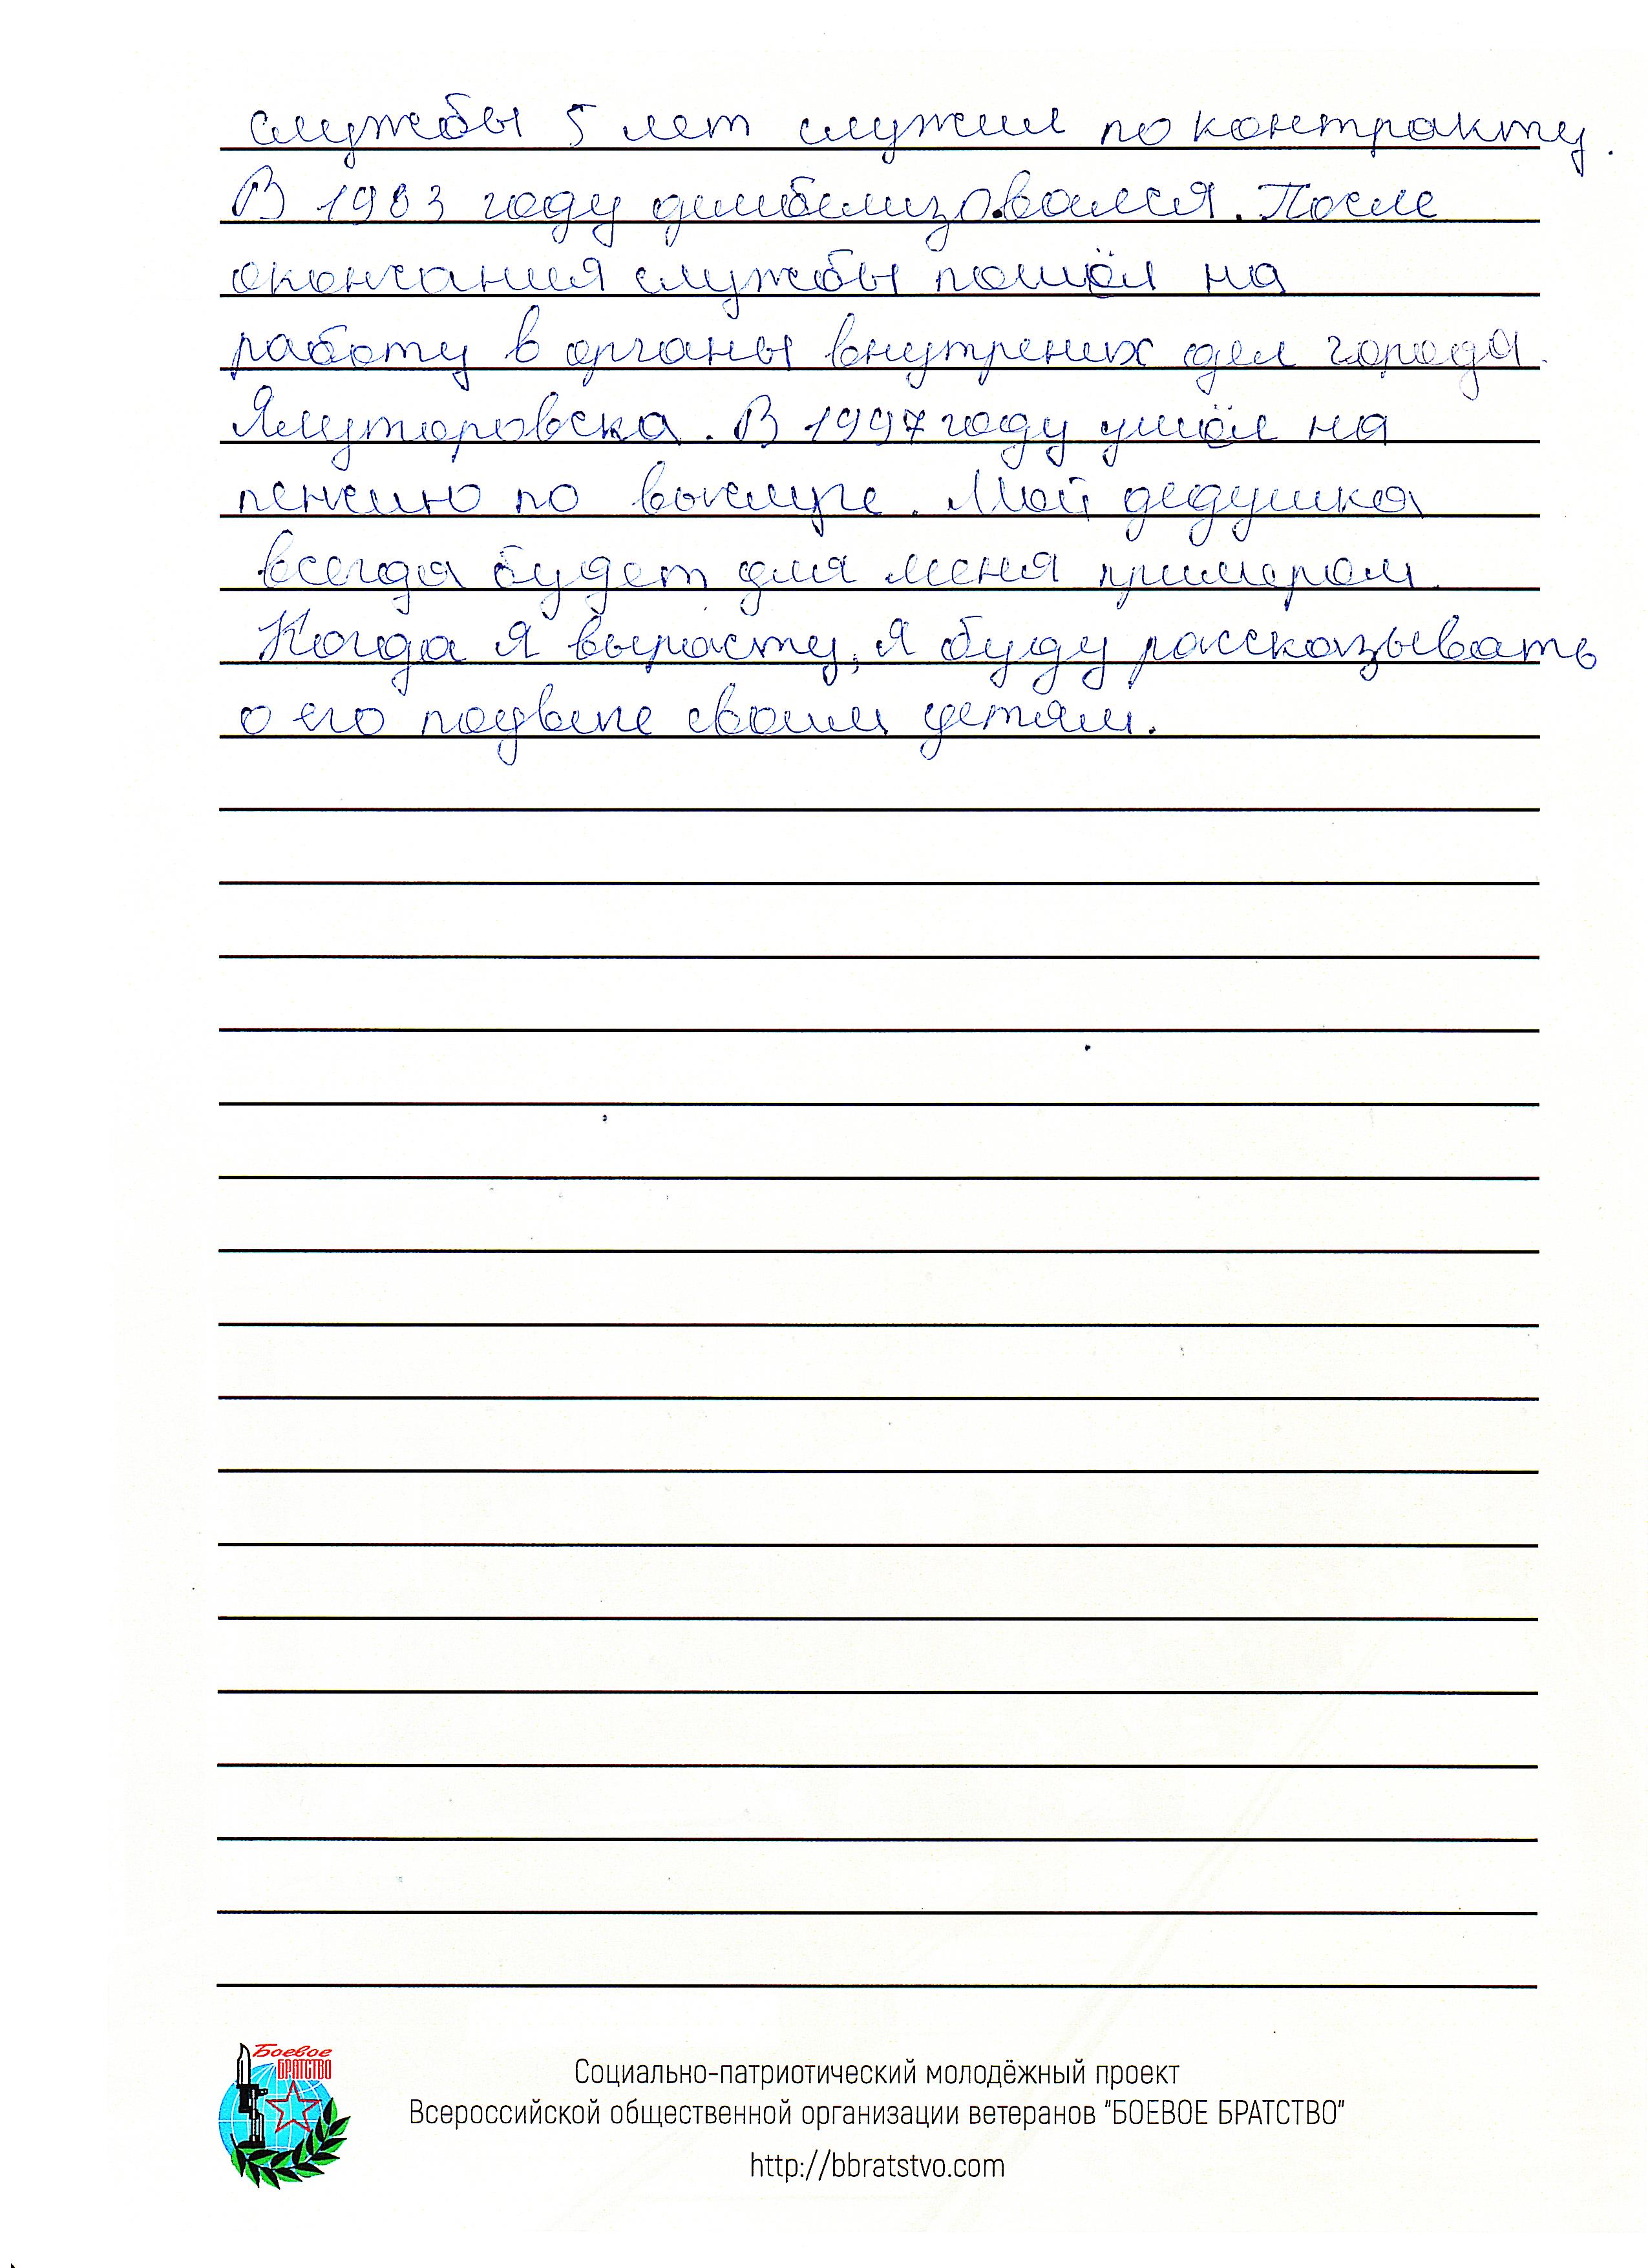 службы 5 лет служил по контракту.
В 1983 году демобилизовался. После
окончания службы пошёл на
работу в органы внутрених дел города
Ялуторовска. В 1997 году ушёл на
пенсию по выслуге. Мой дедушка
всегда будет для меня примером.
Когда я вырасту, я буду рассказывать
о его подвиге своим детям.
Боевое
БРАТСТВО
Социально-патриотический молодёжный проект
Всероссийской общественной организации ветеранов "БОЕВОЕ БРАТСТВО"
http://bbratstvo.com